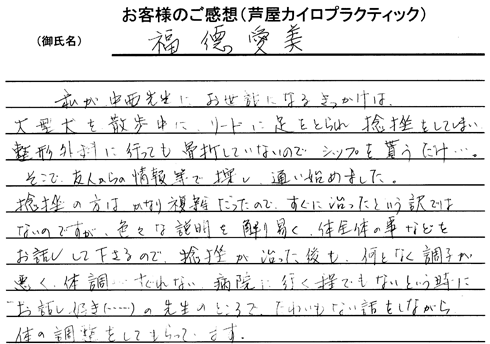 お客様のご感想(芦屋カイロプラクティック)
(御氏名) 福德愛美
私が中西先生に、お世話になるきっかけは、
大型犬を散歩中に、リードに足をとられ捻挫をしてしまい
整形外科に行っても骨折していないのでシップを貰うだけ…。
そこで、友人からの情報等で探し、通い始めました。
捻挫の方はかなり複雑だったので、すぐに治ったという訳では
ないのですが、色々な説明を解り易く、体全体の事などを
お話しして下さるので、捻挫が治った後も、何となく調子が
悪く、体調…すぐれない、病院に行く程でもないという時に
お話し好き(……)の先生のところで、たわいもない話をしながら
体の調整をしてもらっています。